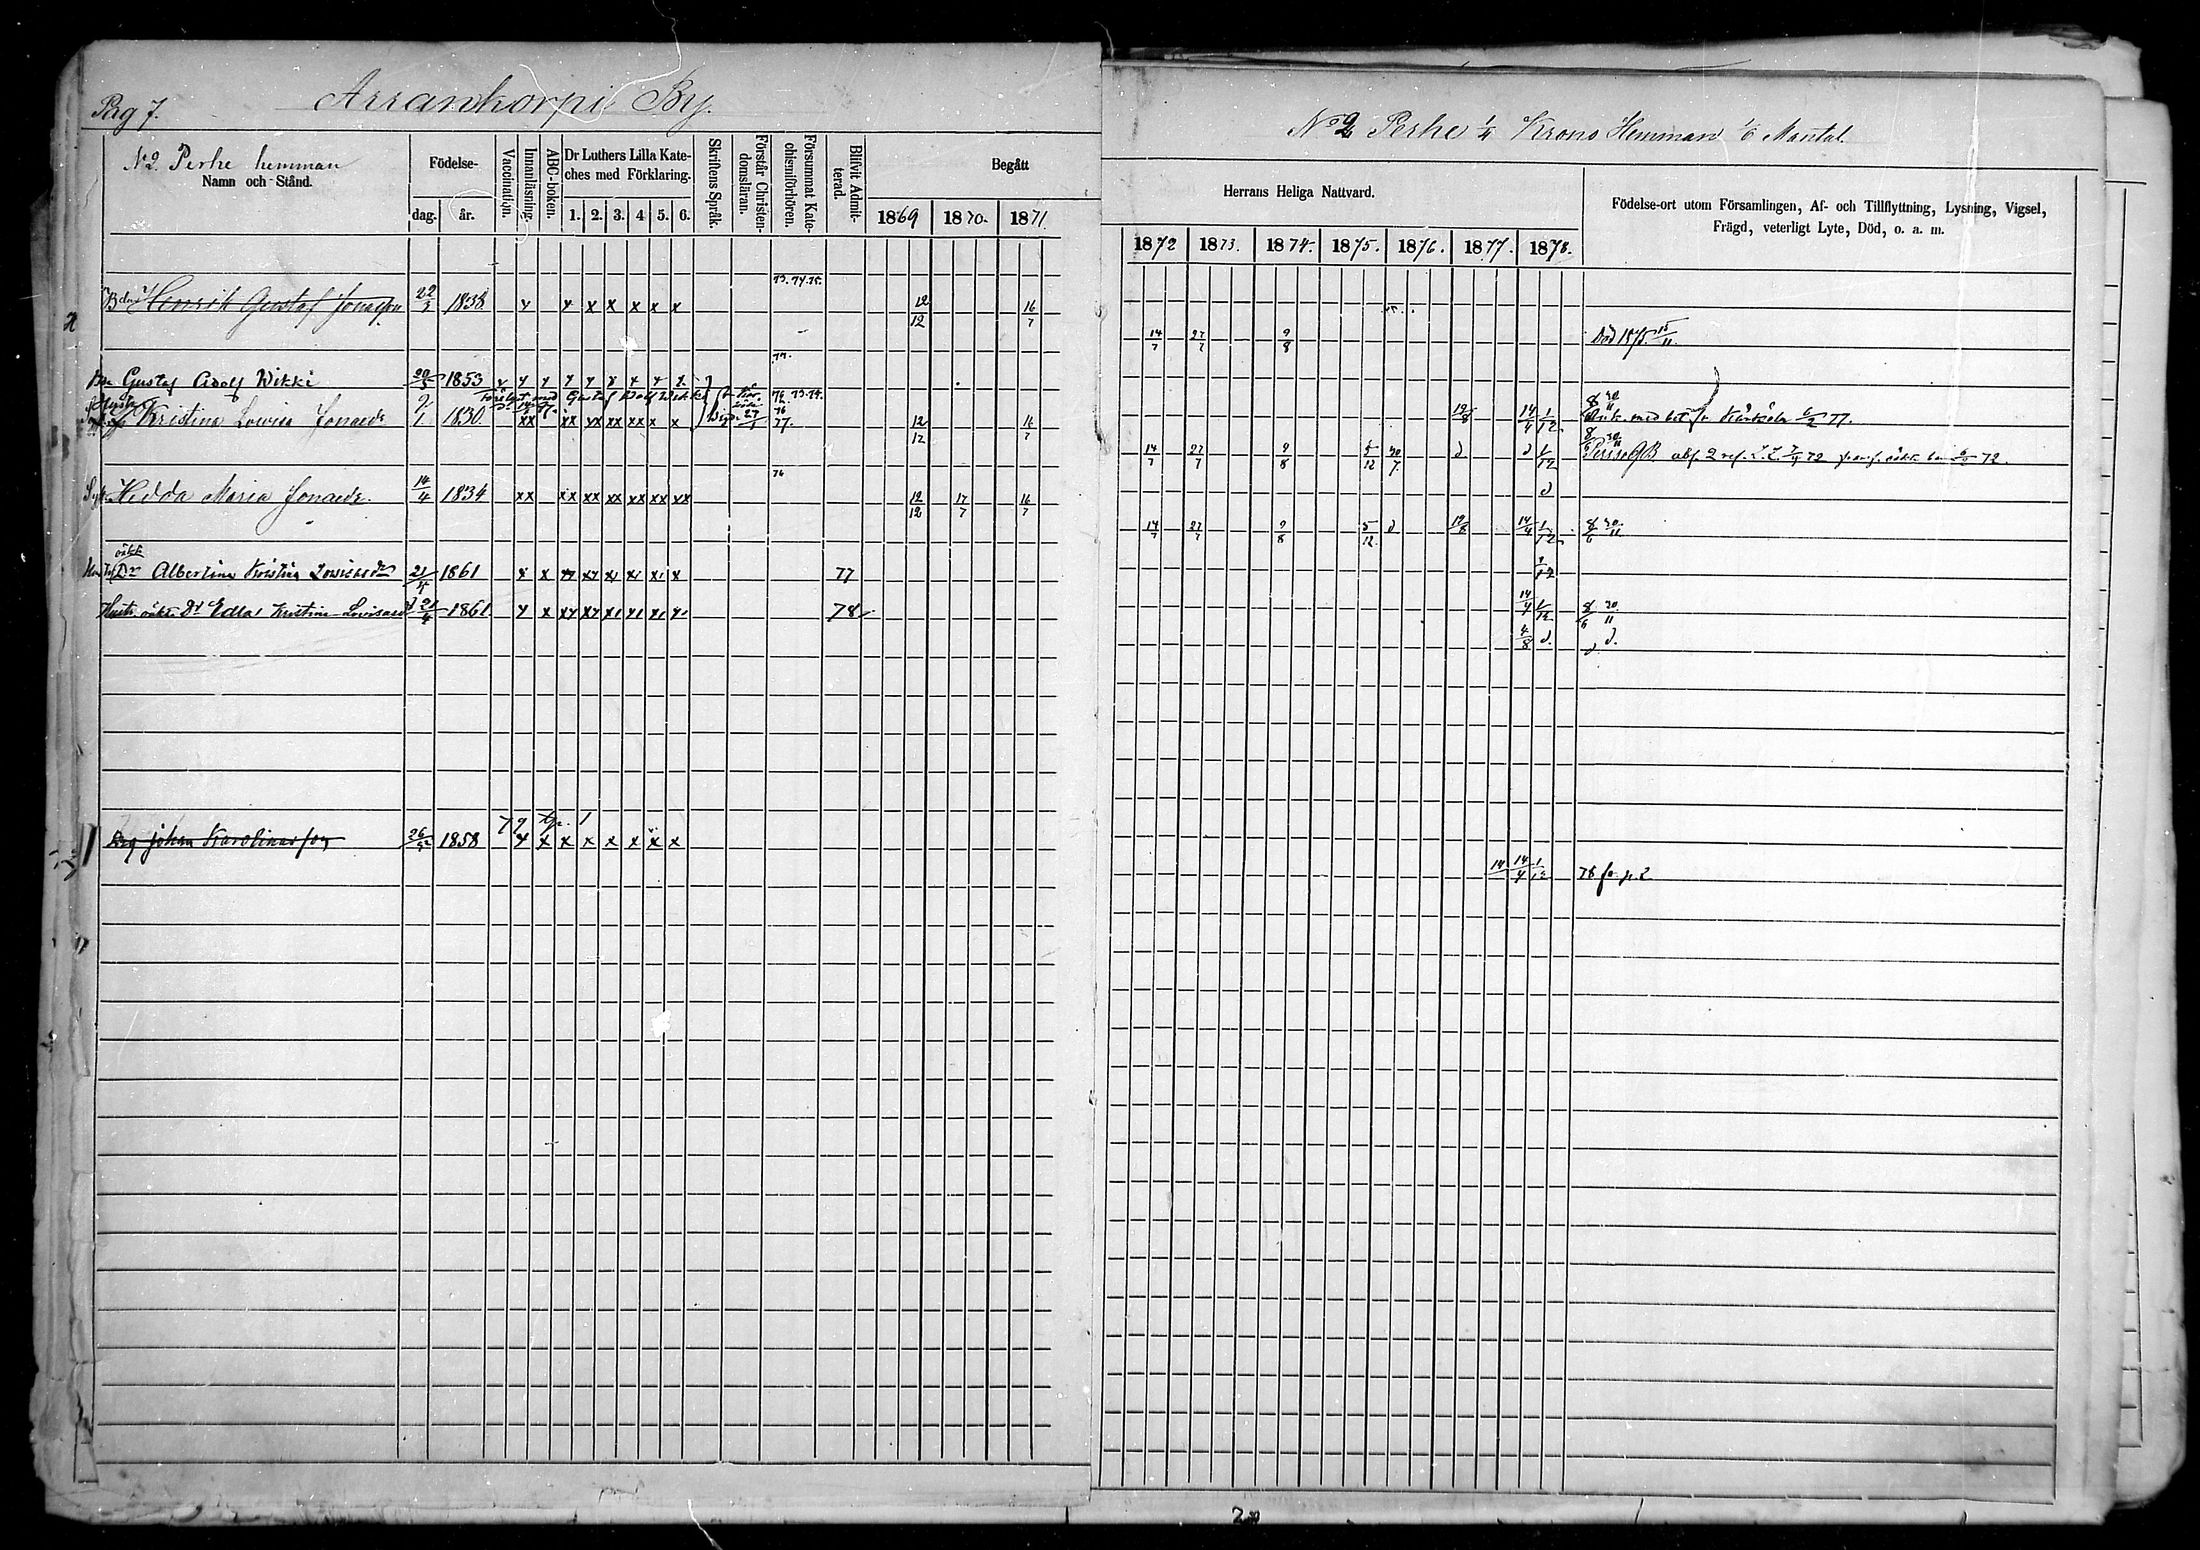 Pag 7. Arrankorpi By.
No 2 Perhe 1/4 Krono Hemman 1/6 Mantal.
No 2 Perhe hemman
Namn och Stånd.
Födelse-
dag. år.
Vaccination.
Innanläsning.
ABC-boken.
Dr Luthers Lilla Kate-
ches med Förklaring.
1. 2. 3. 4 5. 6.
Skriftens Språk.
Förstår Christen-
domsläran.
Försummat Kate-
chismiförhören.
Blifvit Admit-
terad.
Begått
1869 1870. 1871.
Herrans Heliga Nattvard.
1872 1873. 1874. 1875. 1876. 1877. 1878.
Födelse-ort utom Församlingen, Af- och Tillflyttning, Lysning, Vigsel,
Frägd, veterligt Lyte, Död, o. a. m.
73. 74. 75.
Bd. Henrik Gustaf Jonasson 22/3 1838. x x x x x x x 12/12 16/7
14/7 27/7 9/8 Död 1875 15/11.
77.
Gustaf Adolf Wikki 20/5 1853 x x x x x x x x x
med Gustaf Adolf Wikki
19/8 14/4 1/12 8/6 30/11 med bet. fr 77.
Kristina Lowisa Jonaedr 2/1 1830. xx xx xx xx xx x x 12/12 16/7
14/7 27/7 9/8 5/12 30/7 d d 1/12
76
Hedda Maria Jonaedr. 14/4 1834 xx xx xx xx xx xx xx 12/12 17/7 16/7
14/7 27/7 9/8 5/12 d 19/8 14/4 1/12 8/6 30/11
oäkt
Dr Albertina Kristina Lowisaedr 21/4 1861 x x xx xx x x x x 77
14/4 1/12 8/6 30/11
oäkt. Dr Edla Kristina Lovisaedr 21/4 1861 x x xx xx x x x x 78
4/8 d. d d.
Johan Karolinasson 26/12 1858 x x x x x x x x
14 14/4 1/12 78 fr. p. 2